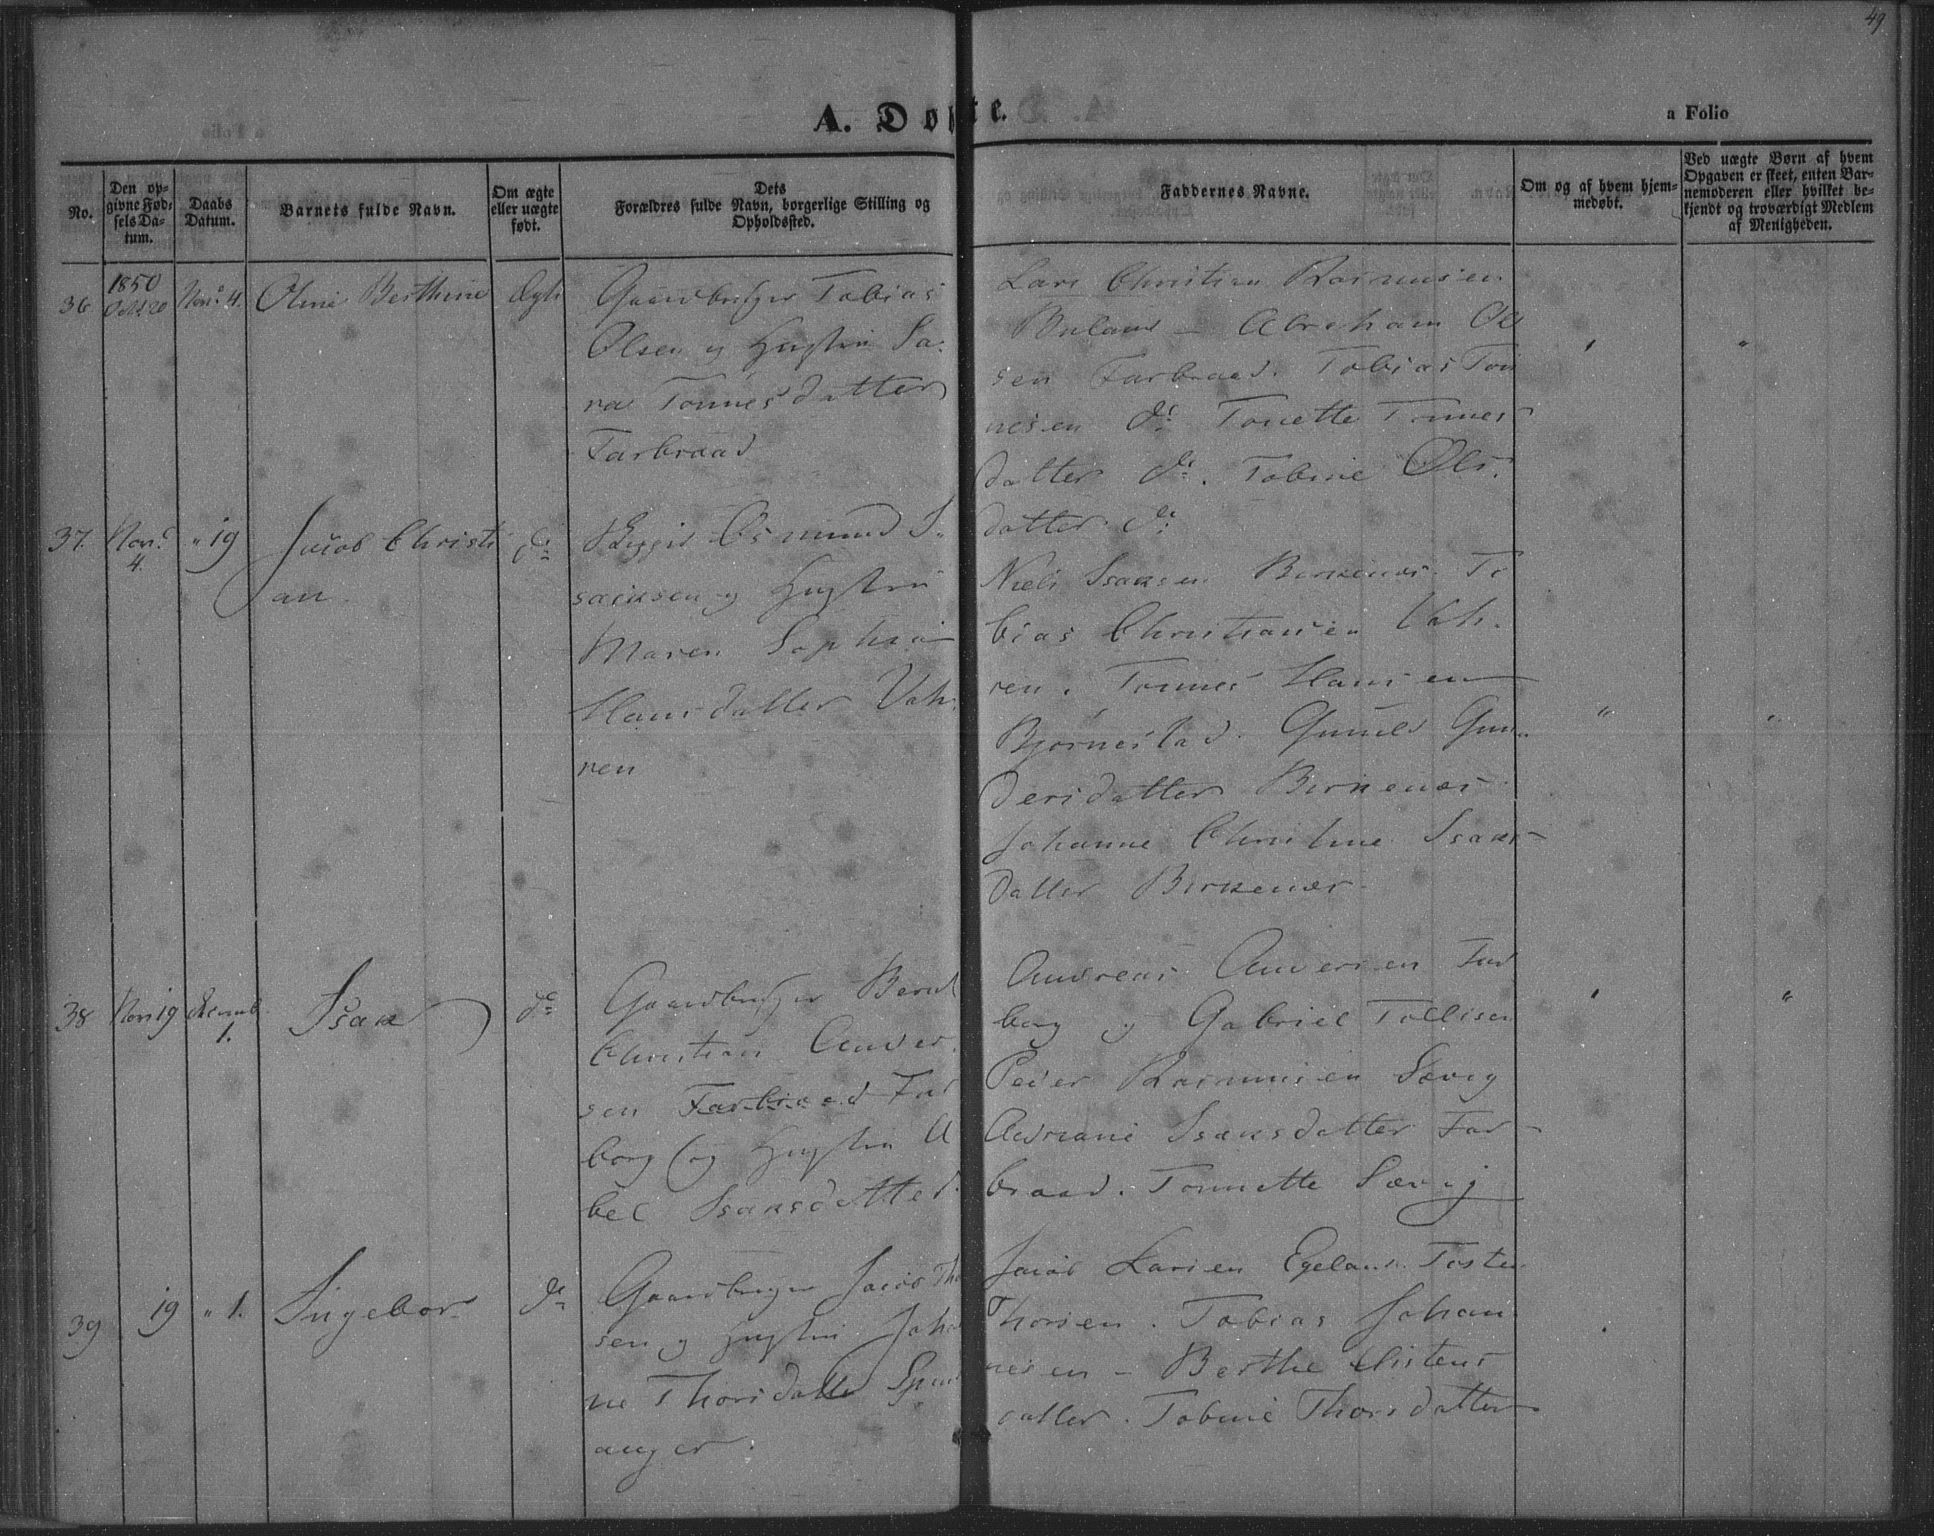 49
A. Døbte.
a Folio
No.
Den op-
givne Fød-
sels Da-
tum.
Daabs
Datum.
Barnets fulde Navn.
Om ægte
eller uægte
født.
Dets
Forældres fulde Navn, borgerlige Stilling og
Opholdssted.
Faddernes Navne.
Om og af hvem hjem-
medøbt.
Ved uægte Børn af hvem
Opgaven er skeet, enten Bar-
nemoderen eller hvilket be-
kjendt og troværdigt Medlem
af Menigheden.
36
1850
Oct. 20
Nov. 4.
Oline Berthine
Ægte
Gaardbruger Tobias
Olsen og Hustru Sa-
ra Tønnesdatter
Farbraad
Lars Christian Rasmusen
Abraham Ol
sen Farbraad. Tobias Tøn
nesen do. Tonette Tønnes
datter do. Tobine Ols
datter do
37.
Nov.
4.
" 19
Jacob Christi
an
do
Osmund I
saksen og Hustru
Maren Sophie
Hansdatter Vah
ren
Niels Isaksen Birkenes. To
bias Christiansen Vah
ren. Tønnes Hansen
Bjørnestad. Gunild Gun
dersdatter Birkenes
Johanne Christine Isaks
datter Birkenes
38
Nov 19
Decemb
1.
Isak
do
Gaardbruger Bernt
Christian Ander
sen Farbraad Far
borg og Hustru A
bel Isaksdatter
Andreas Andersen Far
borg og Gabriel Tollisen
Peder Rasmusen Sævig
Adriane Isaksdatter Far
braad. Tonnette Sævig
39
19
" 1.
Ingebor
do
Gaardbruger Jacob Th
sen og Hustru Joha
ne Thorsdatter Span
anger
Jacob Larsen Egeland. Toste
Thorsen. Tobias Johan
nesen - Berthe
datter. Tobine Thorsdatter